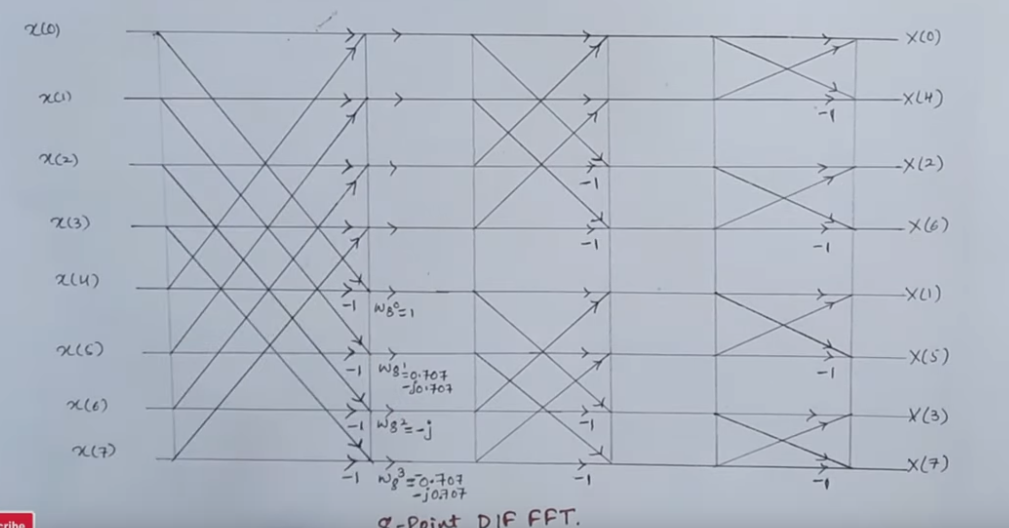 x(0) X(0)
x(1) X(4)
-1
x(2) X(2)
-1
x(3) X(6)
-1 -1
x(4) X(1)
-1 W8^0=1
x(5) X(5)
-1 W8^1=0.707 -1
-j0.707
x(6) X(3)
-1 W8^2=-j -1
x(7) X(7)
-1 W8^3=-0.707 -1 -1
-j0.707
8-Point DIF FFT.
cribe